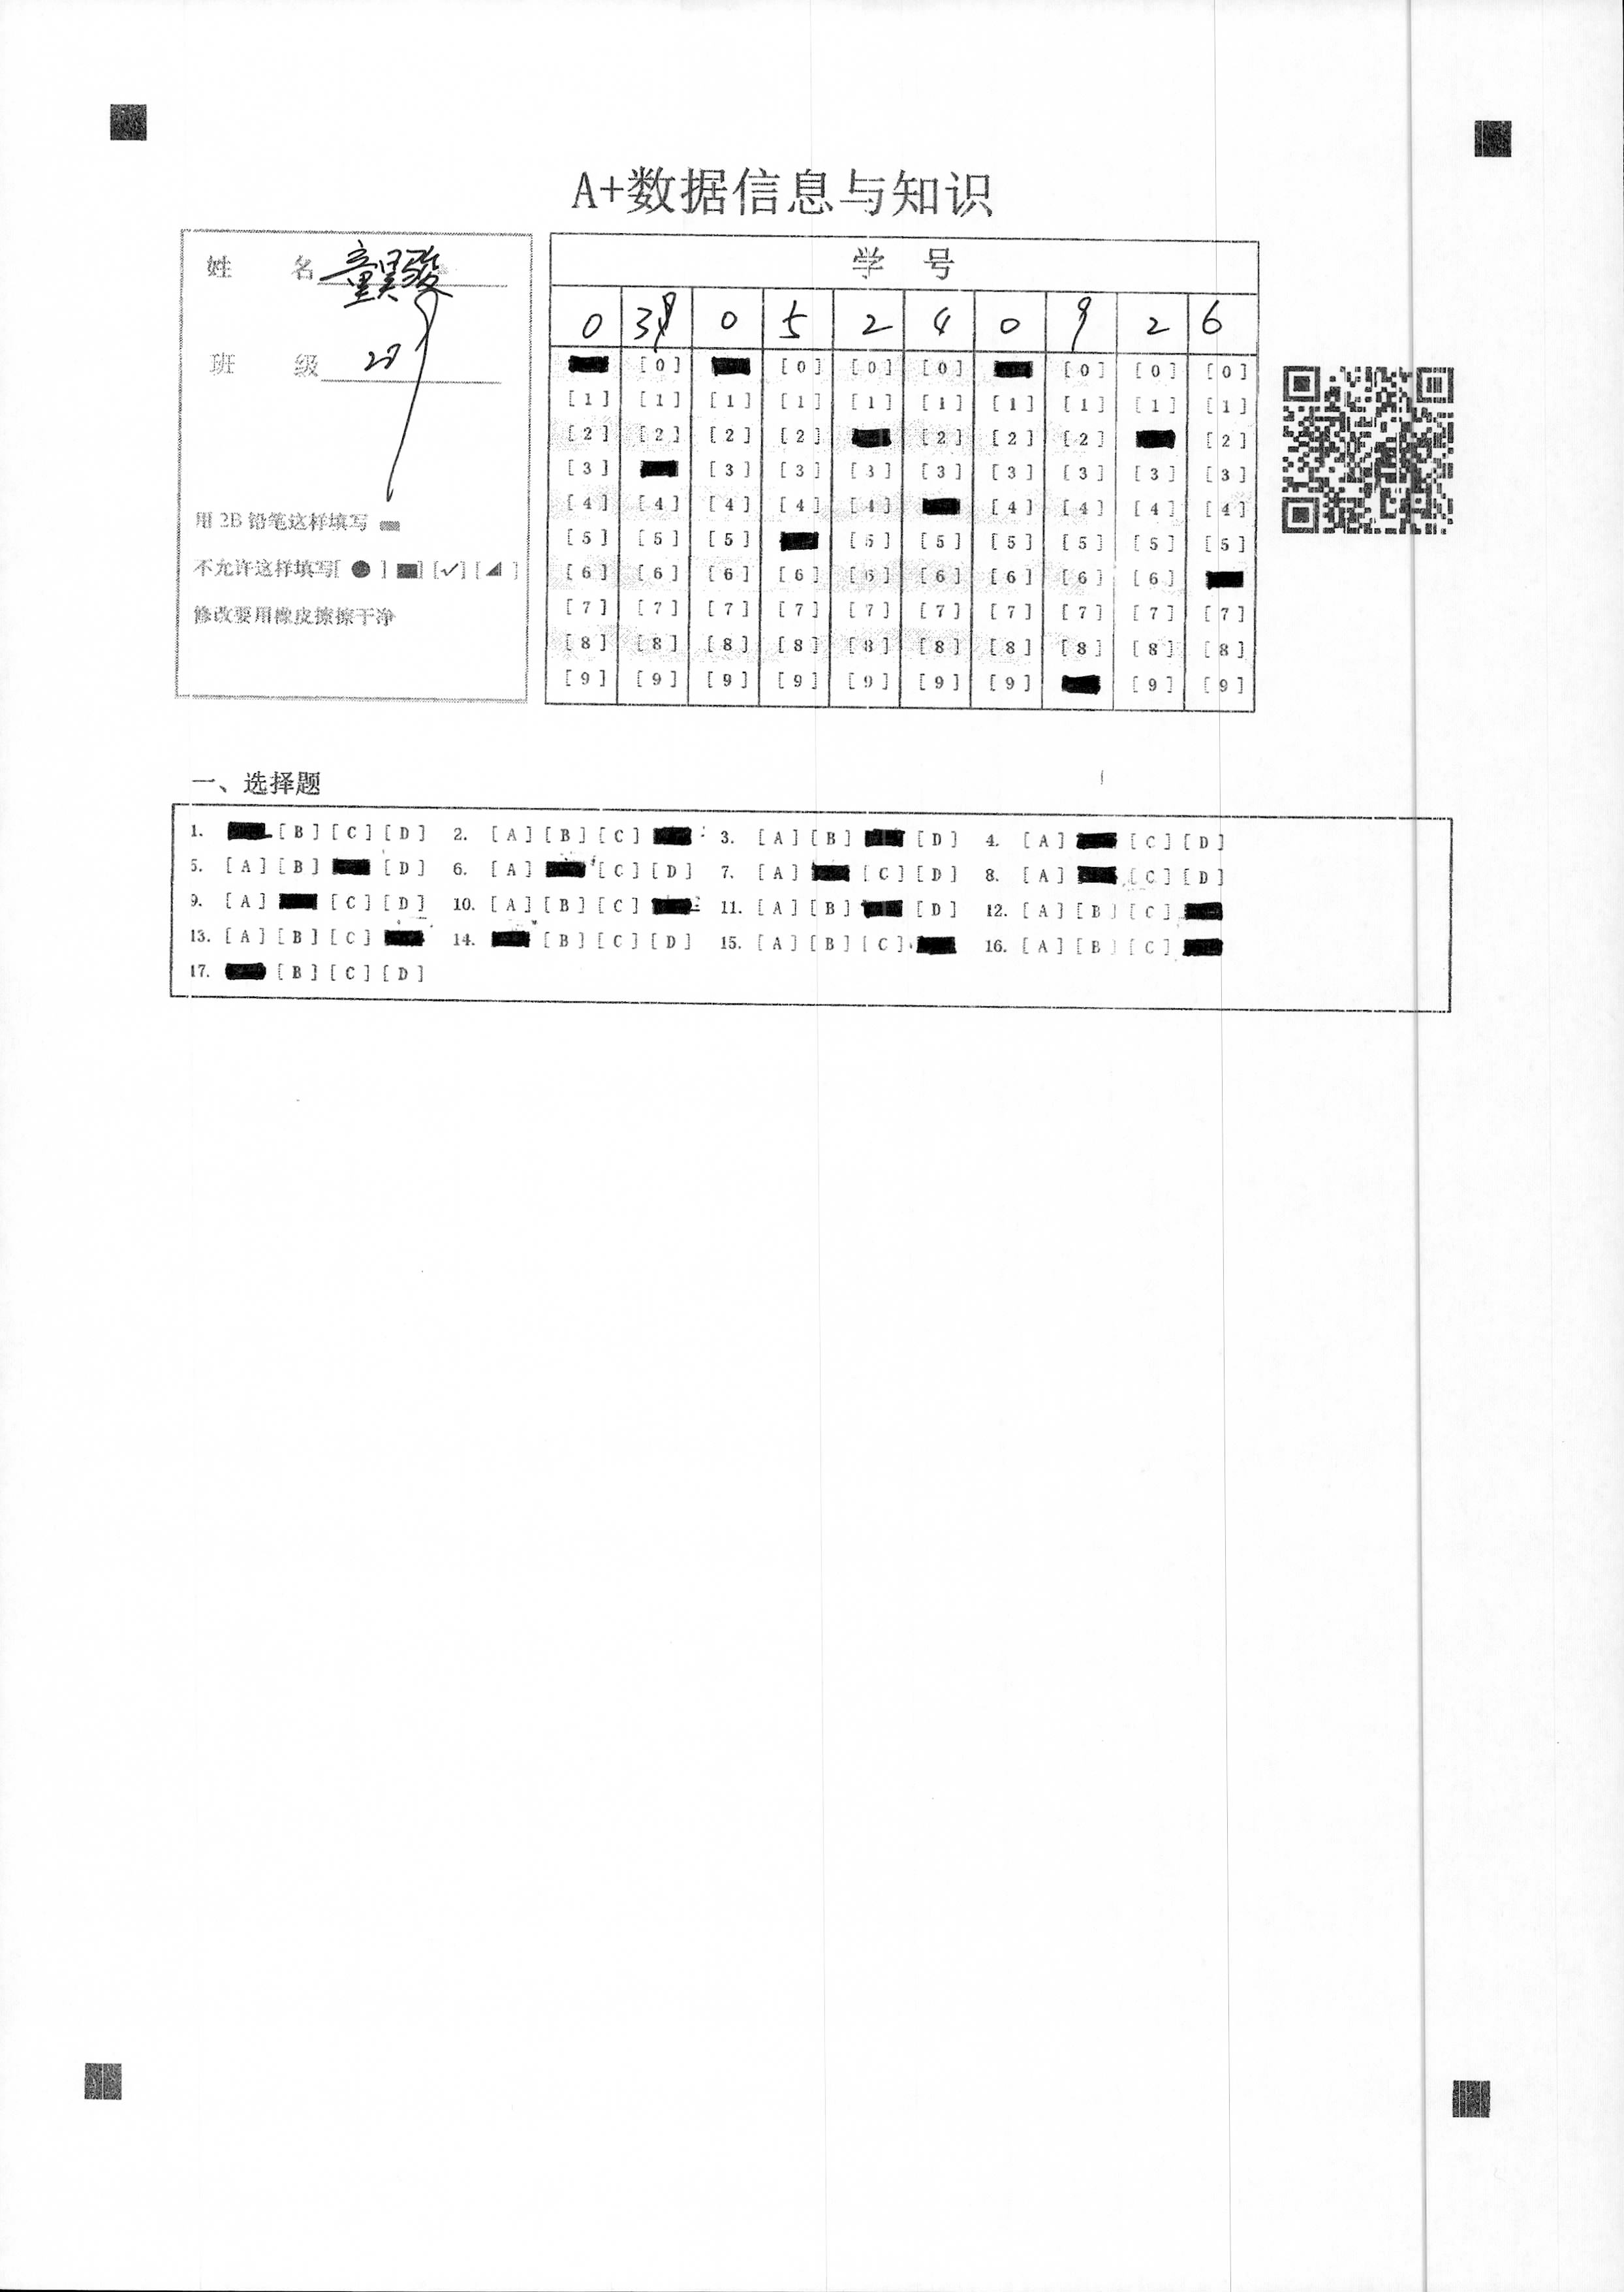 A+数据信息与知识
姓 名 童昊骏
班 级
用 2B 铅笔这样填写
不允许这样填写[ ● ] [✓] [ ]
修改要用橡皮擦擦干净
学 号
0 3 0 5 2 4 0 9 2 6
[0] [0] [0] [0] [0] [0] [0]
[1] [1] [1] [1] [1] [1] [1] [1] [1] [1]
[2] [2] [2] [2] [2] [2] [2] [2]
[3] [3] [3] [3] [3] [3] [3] [3] [3]
[4] [4] [4] [4] [4] [4] [4] [4] [4]
[5] [5] [5] [5] [5] [5] [5] [5] [5]
[6] [6] [6] [6] [6] [6] [6] [6] [6]
[7] [7] [7] [7] [7] [7] [7] [7] [7] [7]
[8] [8] [8] [8] [8] [8] [8] [8] [8] [8]
[9] [9] [9] [9] [9] [9] [9] [9] [9]
一、选择题
1. [B] [C] [D] 2. [A] [B] [C] 3. [A] [B] [D] 4. [A] [C] [D]
5. [A] [B] [D] 6. [A] [C] [D] 7. [A] [C] [D] 8. [A] [C] [D]
9. [A] [C] [D] 10. [A] [B] [C] 11. [A] [B] [D] 12. [A] [B] [C]
13. [A] [B] [C] 14. [B] [C] [D] 15. [A] [B] [C] 16. [A] [B] [C]
17. [B] [C] [D]